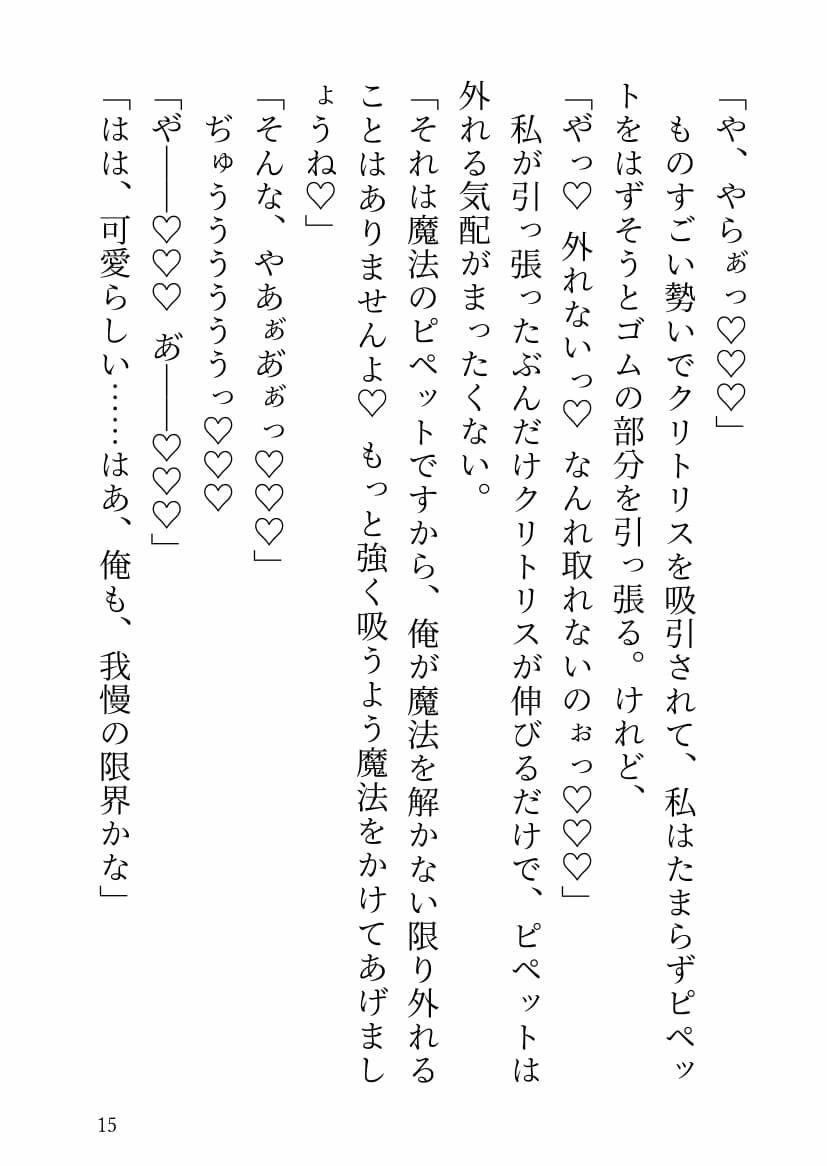 「や、やらぁ゛っ♡♡♡」
　ものすごい勢いでクリトリスを吸引されて、私はたまらずピペッ
トをはずそうとゴムの部分を引っ張る。けれど、
「や゛っ♡ 外れないっ♡ なんれ取れないのぉっ♡♡♡」
　私が引っ張ったぶんだけクリトリスが伸びるだけで、ピペットは
外れる気配がまったくない。
「それは魔法のピペットですから、俺が魔法を解かない限り外れる
ことはありませんよ♡ もっと強く吸うよう魔法をかけてあげまし
ょうね♡」
「そんな、やあぁ゛あ゛ぁ゛っ♡♡♡」
　ぢゅうううううぅっ♡♡♡
「や゛――♡♡♡ あ゛――♡♡♡」
「はは、可愛らしい……はあ、俺も、我慢の限界かな」
15